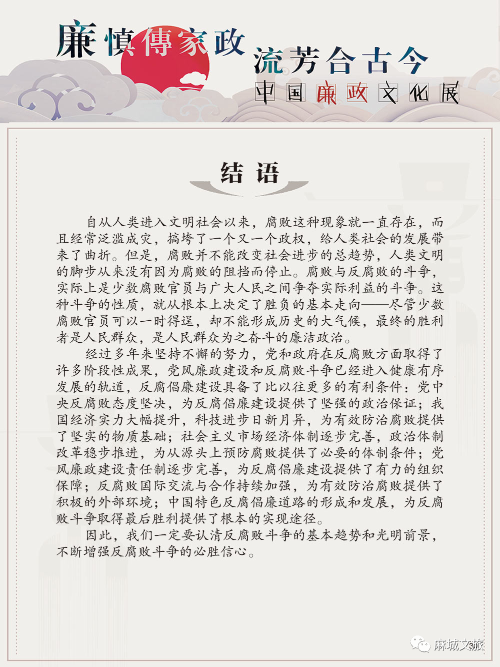 廉慎傳家政
流芳合古今
中国廉政文化展
结语
自从人类进入文明社会以来，腐败这种现象就一直存在，而
且经常泛滥成灾，搞垮了一个又一个政权，给人类社会的发展带
来了曲折。但是，腐败并不能改变社会进步的总趋势，人类文明
的脚步从来没有因为腐败的阻挡而停止。腐败与反腐败的斗争，
实际上是少数腐败官员与广大人民之间争夺实际利益的斗争。这
种斗争的性质，就从根本上决定了胜负的基本走向——尽管少数
腐败官员可以一时得逞，却不能形成历史的大气候，最终的胜利
者是人民群众，是人民群众为之奋斗的廉洁政治。
经过多年来坚持不懈的努力，党和政府在反腐败方面取得了
许多阶段性成果，党风廉政建设和反腐败斗争已经进入健康有序
发展的轨道，反腐倡廉建设具备了比以往更多的有利条件：党中
央反腐败态度坚决，为反腐倡廉建设提供了坚强的政治保证；我
国经济实力大幅提升，科技进步日新月异，为有效防治腐败提供
了坚实的物质基础；社会主义市场经济体制逐步完善，政治体制
改革稳步推进，为从源头上预防腐败提供了必要的体制条件；党
风廉政建设责任制逐步完善，为反腐倡廉建设提供了有力的组织
保障；反腐败国际交流与合作持续加强，为有效防治腐败提供了
积极的外部环境；中国特色反腐倡廉道路的形成和发展，为反腐
败斗争取得最后胜利提供了根本的实现途径。
因此，我们一定要认清反腐败斗争的基本趋势和光明前景，
不断增强反腐败斗争的必胜信心。
麻城文旅